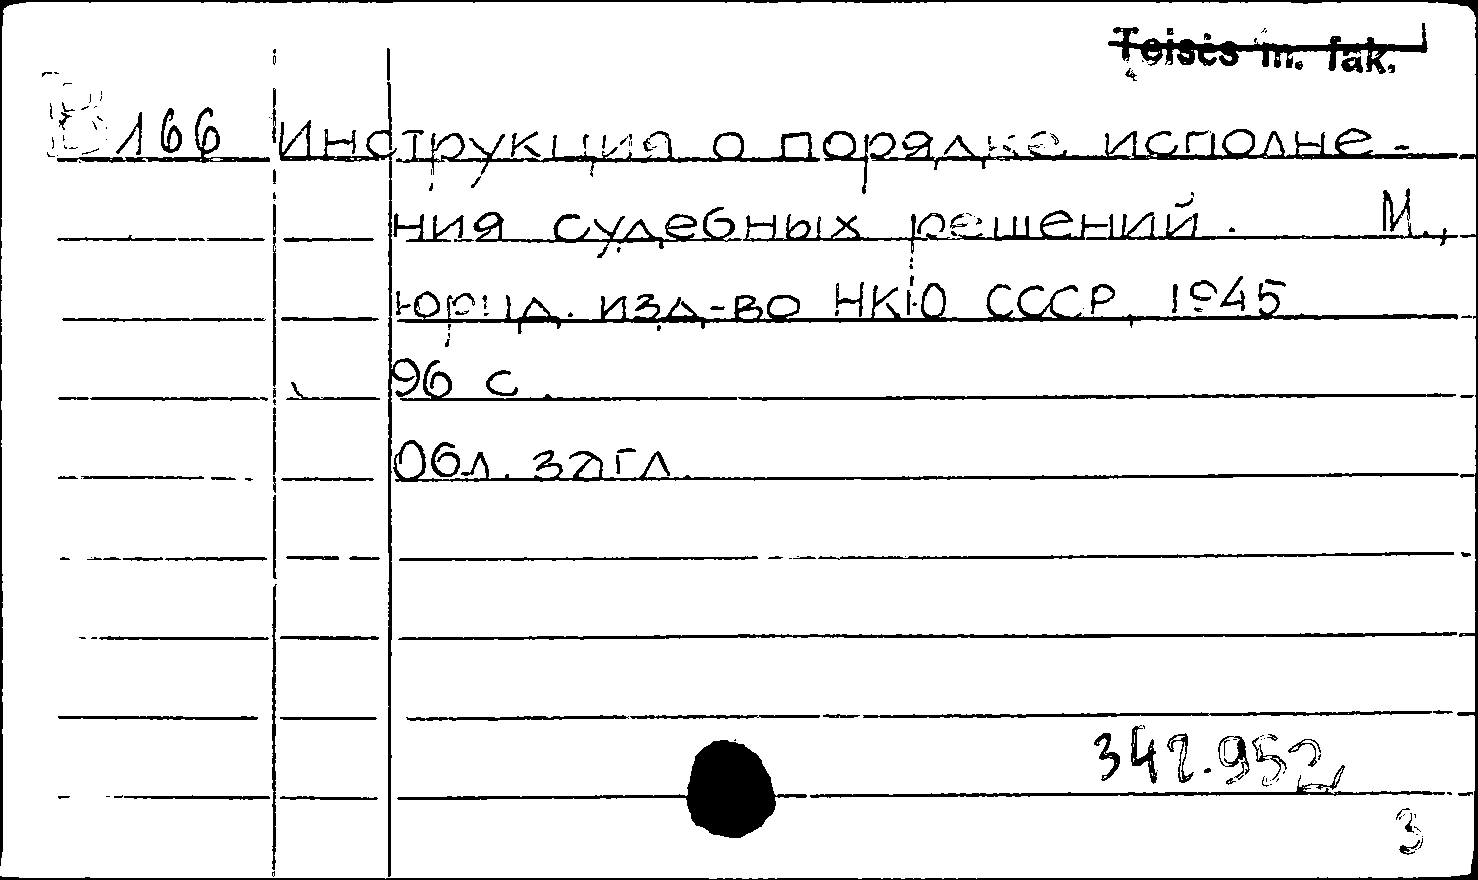 Teisės m. fak.
B 166 Инструкция о порядке исполне-
ния судебных решений. М.,
юрид. изд-во НКЮ СССР, 1945
96 с.
Обл. загл.
342.952
3